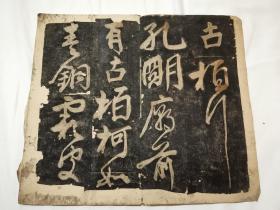 古柏行
孔明廟前
有古柏柯如
青銅根